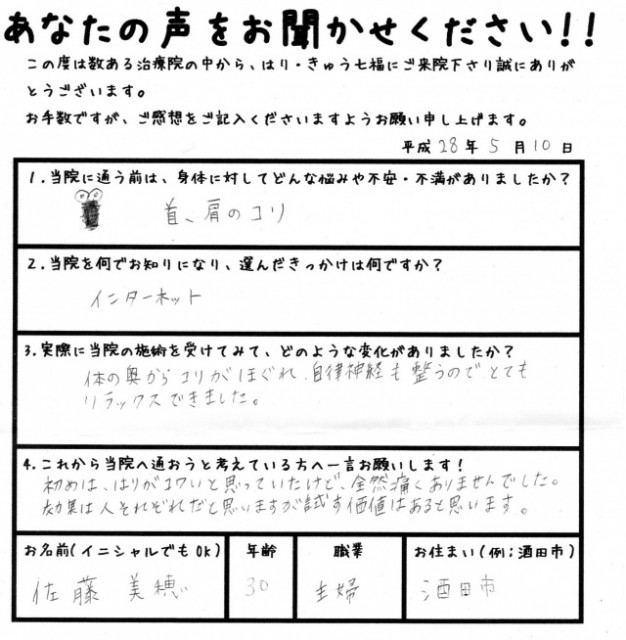 あなたの声をお聞かせください!!
この度は数ある治療院の中から、はり・きゅう七福にご来院下さり誠にありが
とうございます。
お手数ですが、ご感想をご記入くださいますようお願い申し上げます。
平成28年5月10日
1.当院に通う前は、身体に対してどんな悩みや不安・不満がありましたか?
首、肩のコリ
2.当院を何でお知りになり、選んだきっかけは何ですか?
インターネット
3.実際に当院の施術を受けてみて、どのような変化がありましたか?
体の奥からコリがほぐれ、自律神経も整うのでとても
リラックスできました。
4.これから当院へ通おうと考えている方へ一言お願いします!
初めは、はりがコワいと思っていたけど、全然痛くありませんでした。
効果は人それぞれだと思いますが試す価値はあると思います。
お名前(イニシャルでもOK) 年齢 職業 お住まい(例;酒田市)
佐藤 美穂 30 主婦 酒田市